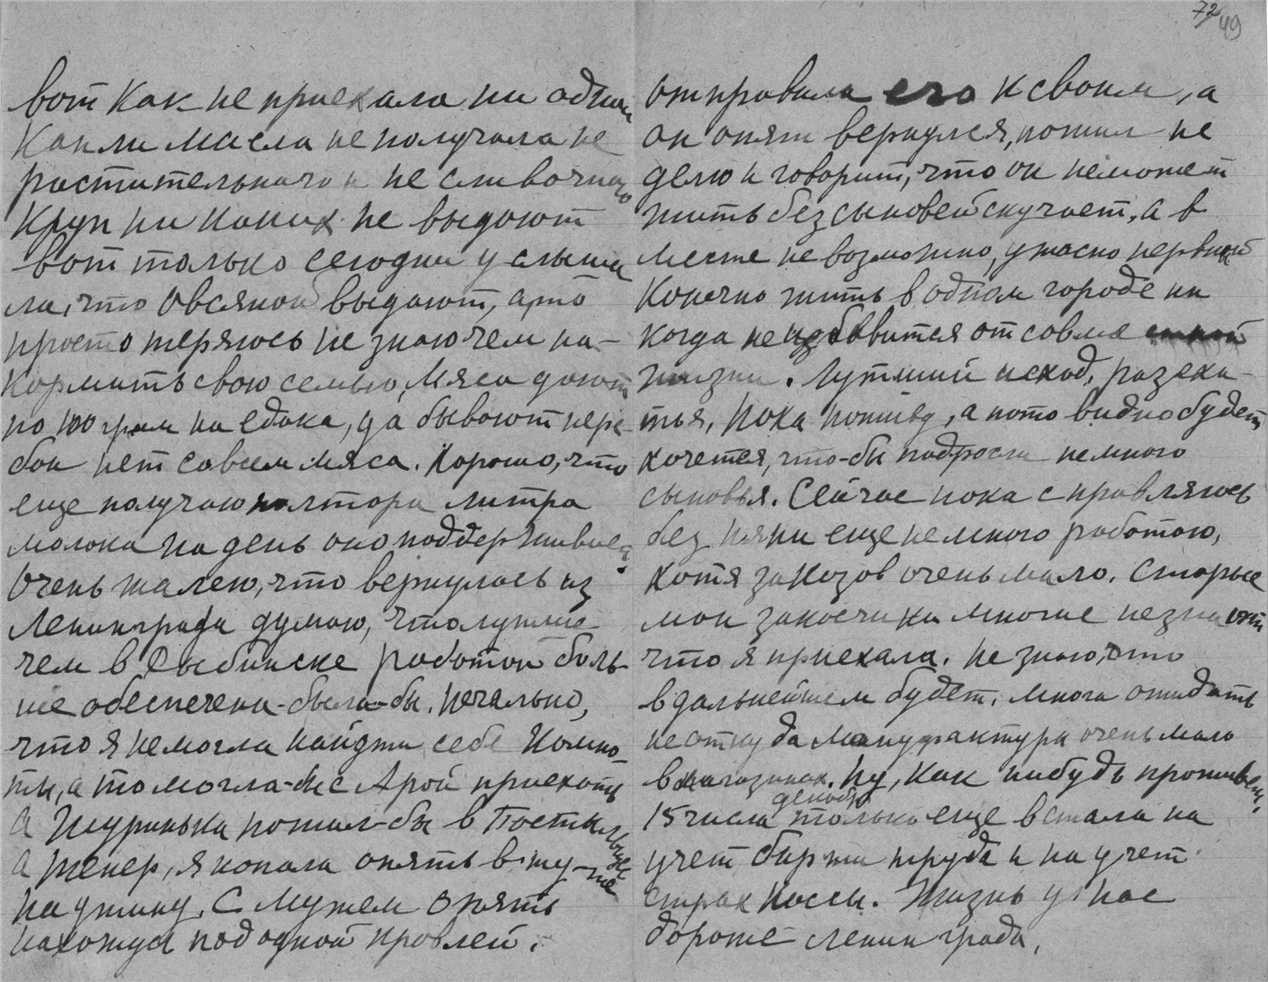 72
49
вот как не приехала ни одной
капли масла не получала не
растительного и не сливочного
круп ни каких не выдают
вот только сегодня услыша
ла, что овсяной выдают, а то
просто теряюсь не знаю чем на-
кормить свою семью, мяса дают
по 100 грам на едока, да бывают пере
бои нет совсем мяса. Хорошо, что
еще получаю полтора литра
молока на день оно поддерживает
Очень жалею, что вернулась из
Ленинграда думаю, что лутше
чем в Рыбинске работой боль
ше обеспечена-была-бы. Печально,
что я не могла найдти себе комна
ты, а то могла-бы с Арой приехать
а Шуринька пожил-бы в Посты
а тепер, я попала опять в ту-же
паутину. С мужем опять
нахожусь под одной кровлей.
отправила его к своим, а
он опять вернулся, пожил не
делю и говорит, что он не может
жить без сыновей скучает, а в
месте не возможно, ужасно нервный
Конечно жить в одном городе ни
когда не избавится от совме
жизни. Лутший исход, разеха-
тья, пока пошлед, а пото видно будет
хочется, что-бы подросли немного
сыновья. Сейчас пока справляюсь
без няни еще немного работаю,
хотя заказов очень мало. Старые
мои заказчики многие не знают
что я приехала. Не знаю, что
в дальнейшем будет. Многа ожидать
не откуда мануфактуры очень мало
в магазинах. Ну, как нибудь проживем.
15 числа декабря только еще встала на
учет биржи труда и на учет
страх кассы. Жизнь у нас
дороже Ленинграда.